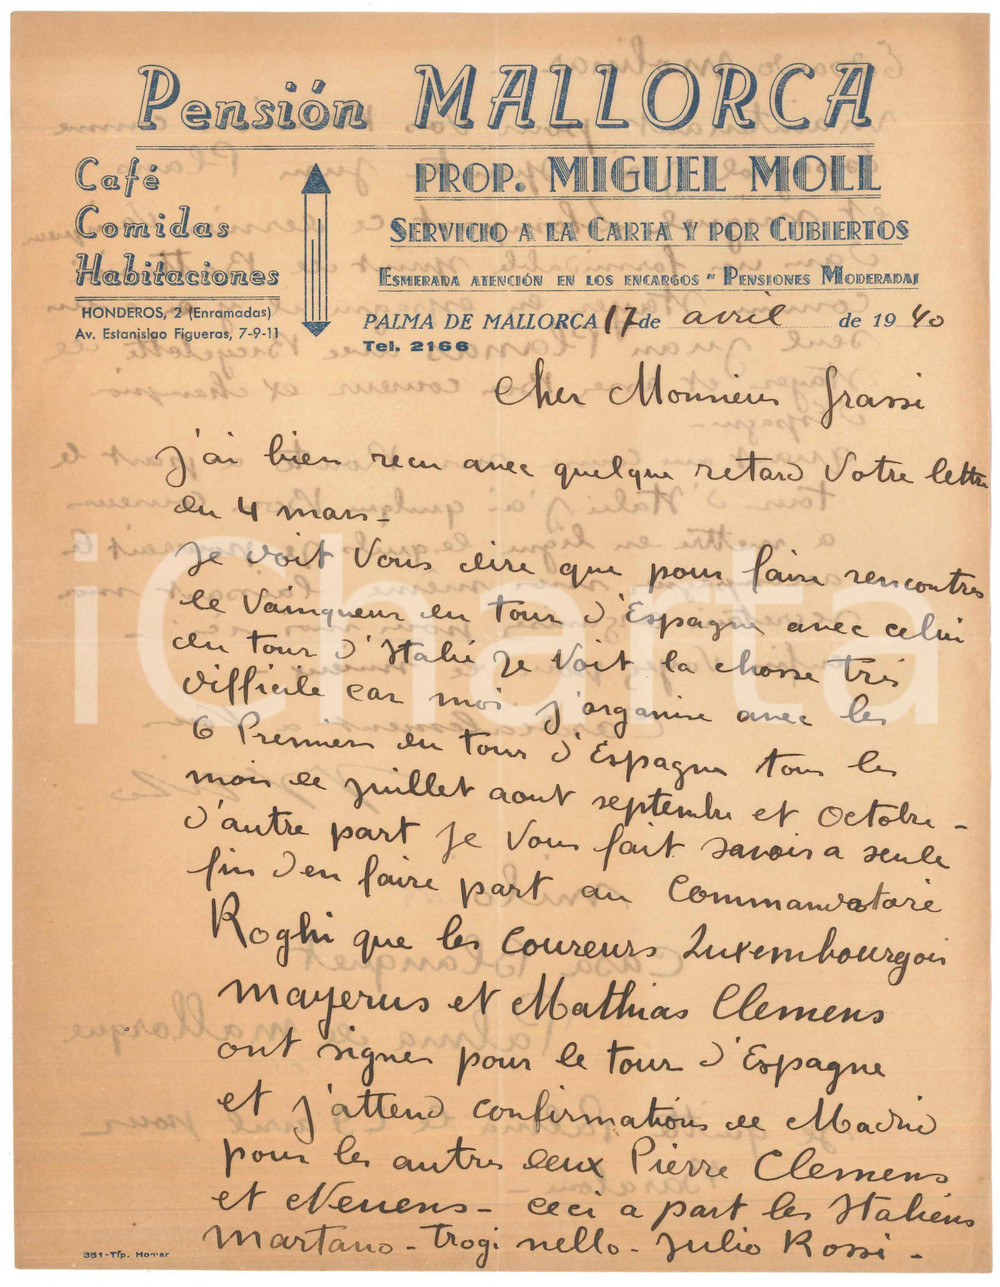 Pensión MALLORCA
Café
Comidas
Habitaciones
HONDEROS, 2 (Enramadas)
Av. Estanislao Figueras, 7-9-11
PROP. MIGUEL MOLL
SERVICIO A LA CARTA Y POR CUBIERTOS
ESMERADA ATENCIÓN EN LOS ENCARGOS - PENSIONES MODERADAS
PALMA DE MALLORCA 17 de avril de 1940
Tel. 2166
Cher Monsieur Grassi
J'ai bien recu avec quelque retard votre lettre
du 4 mars -
Je voit vous dire que pour faire rencontres
le vainqueur du tour d'Espagne avec celui
du tour d'Italie Je voit la chosse tres
difficile car moi j'organise avec les
6 Premiers du tour d'Espagne tous les
mois de juillet aout septembre et octobre -
d'autre part Je vous fait savois a seule
fin d'en faire part au Commandatore
Roghi que les coureurs Luxembourgois
mayerus et Mathias Clemens
ont signes pour le tour d'Espagne
et j'attend confirmations de Madrid
pour les autres deux Pierre Clemens
et Neuens - ceci a part les Italiens
Martano - trogi nello - Julio Rossi -
351-Tip. Homar
iCharta